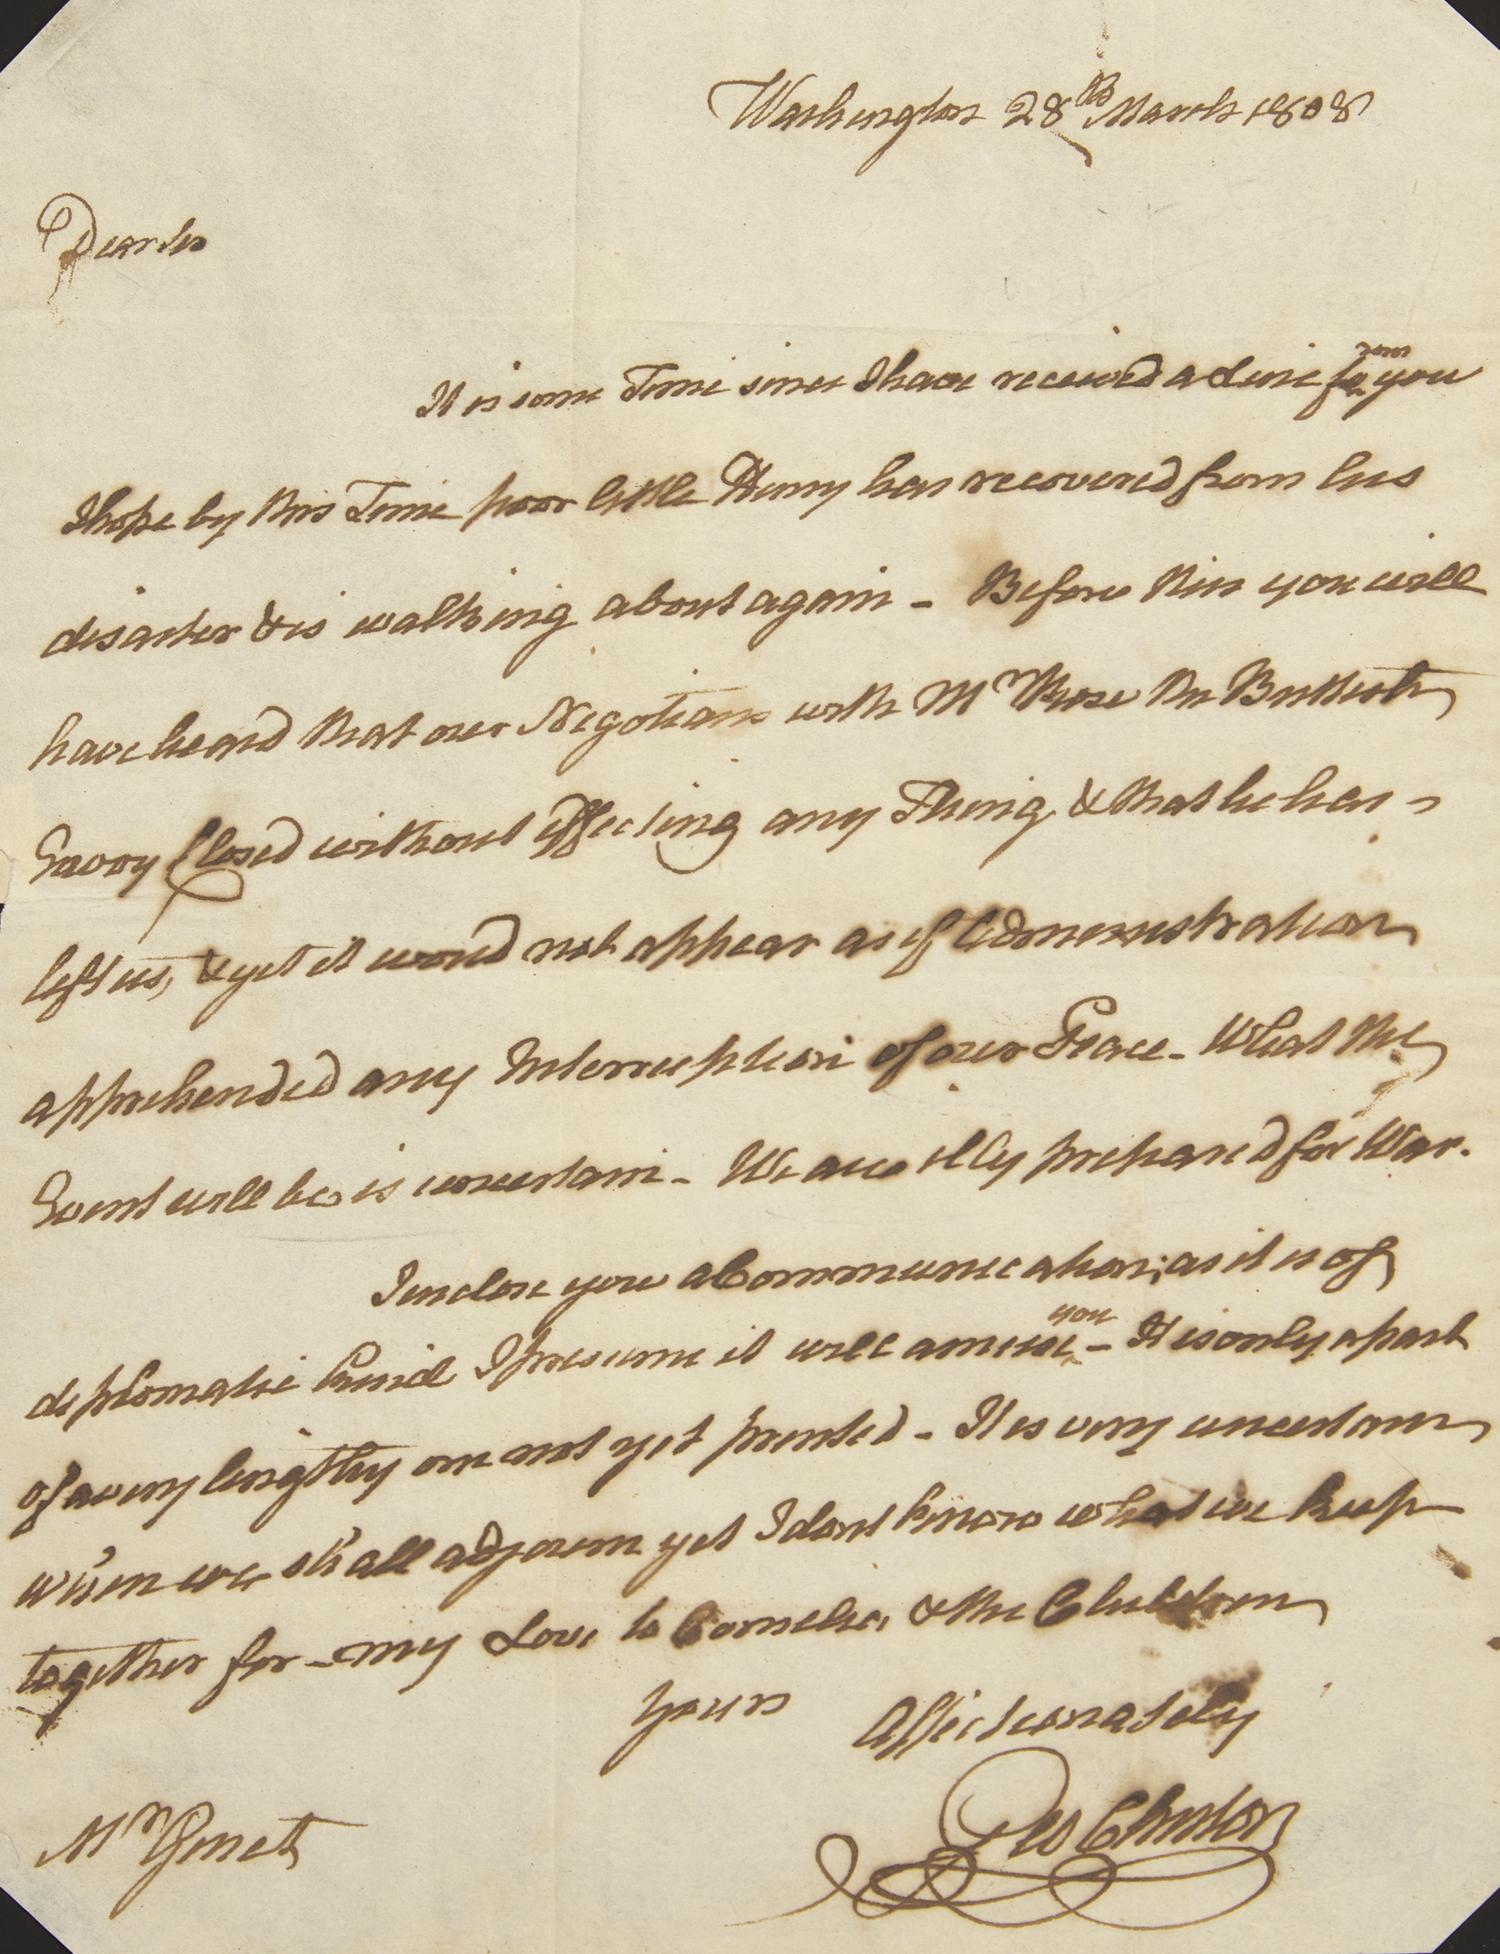 Washington 28th March 1808
Dear Sir
It is some Time since I have received a Line from you
I hope by this Time poor little Henry has recovered from his
disaster & is walking about again - Before this you will
have heard that our Negotians with Mr Rose the British
Envoy closed without effecting any Thing, & that he has
left us, & yet it woud not appear as if Administration
apprehended any Interruption of our Peace - What the
Event will be is uncertain - We are illy prepared for War.
I enclose you a Communication; as it is of
diplomatic kind I presume it will amuse you - It is only a part
of a very lengthy one not yet printed - It is very uncertain
when we shall adjourn yet I dont know what we keep
together for - my Love to Cornelia & the Children
Yours Affectionately
Geo Clinton
Mr Genet